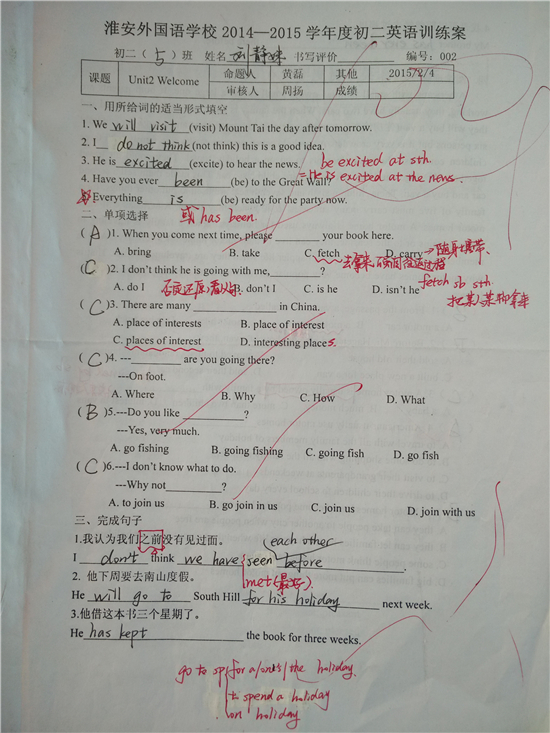 淮安外国语学校 2014—2015 学年度初二英语训练案
初二（ 5 ）班 姓名 刘静 书写评价 编号：002
课题 Unit2 Welcome 命题人 黄磊 其他 2015/2/4
审核人 周扬 成绩
一、用所给词的适当形式填空
1. We will visit (visit) Mount Tai the day after tomorrow.
2. I do not think (not think) this is a good idea.
3. He is excited (excite) to hear the news. be excited at sth.
= He is excited at the news.
4. Have you ever been (be) to the Great Wall?
5. Everything is (be) ready for the party now.
二、单项选择 或 has been.
( A )1. When you come next time, please ________ your book here.
A. bring B. take C. fetch D. carry → 随身携带、
去拿来,
( C )2. I don't think he is going with me,________?
A. do I B. don't I C. is he D. isn't he
否定还原
fetch sb sth.
把某人某物拿来
( C )3. There are many ________ in China.
A. place of interests B. place of interest
C. places of interest D. interesting places.
( C )4. ---________ are you going there?
---On foot.
A. Where B. Why C. How D. What
( B )5.---Do you like ________?
---Yes, very much.
A. go fishing B. going fishing C. going fish D. go fish
( C )6.---I don't know what to do.
---Why not________?
A. to join us B. go join in us C. join us D. join with us
三、完成句子
1.我认为我们之前没有见过面。 each other
I don't think we have seen before .
met(最好).
2. 他下周要去南山度假。
He will go to South Hill for his holiday next week.
3.他借这本书三个星期了。
He has kept the book for three weeks.
go to sp for a/one's/the holiday.
to spend a holiday
on holiday